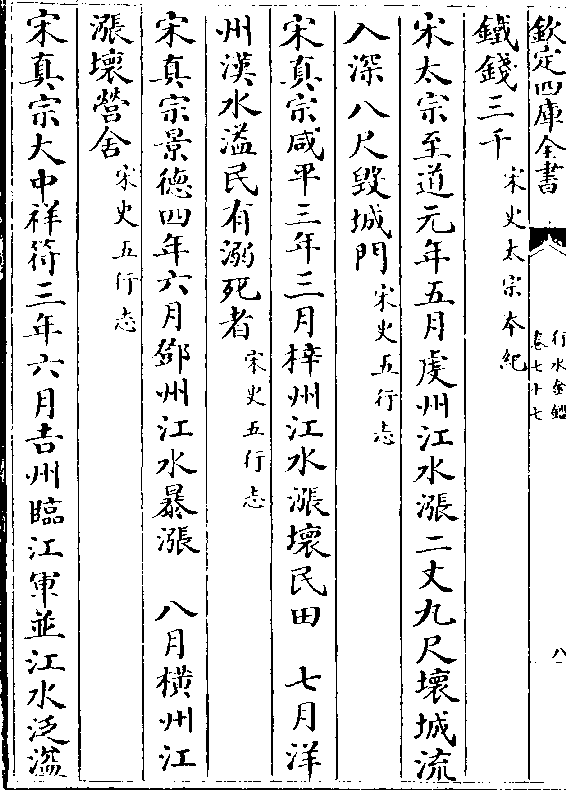 欽定四庫全書
行水金鑑
卷七十七
八
鐵錢三千 宋史太宗本紀
宋太宗至道元年五月虔州江水漲二丈九尺壞城流
入深八尺毀城門 宋史五行志
宋真宗咸平三年三月梓州江水漲壞民田 七月洋
州漢水溢民有溺死者 宋史五行志
宋真宗景德四年六月鄧州江水暴漲 八月橫州江
漲壞營舍 宋史五行志
宋真宗大中祥符三年六月吉州臨江軍並江水泛溢